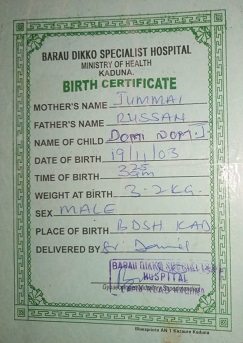 BARAU DIKKO SPECIALIST HOSPITAL
MINISTRY OF HEALTH
KADUNA.
BIRTH CERTIFICATE
MOTHER'S NAME JUMMAI
FATHER'S NAME RUSSAN
NAME OF CHILD DOMI NOM.J
DATE OF BIRTH 19/11/03
TIME OF BIRTH 325am
WEIGHT AT BIRTH 3.2KG.
SEX MALE
PLACE OF BIRTH BDSH KAD
DELIVERED BY Sr Daniel
BARAU DIKKO SPECIALIST
HOSPITAL